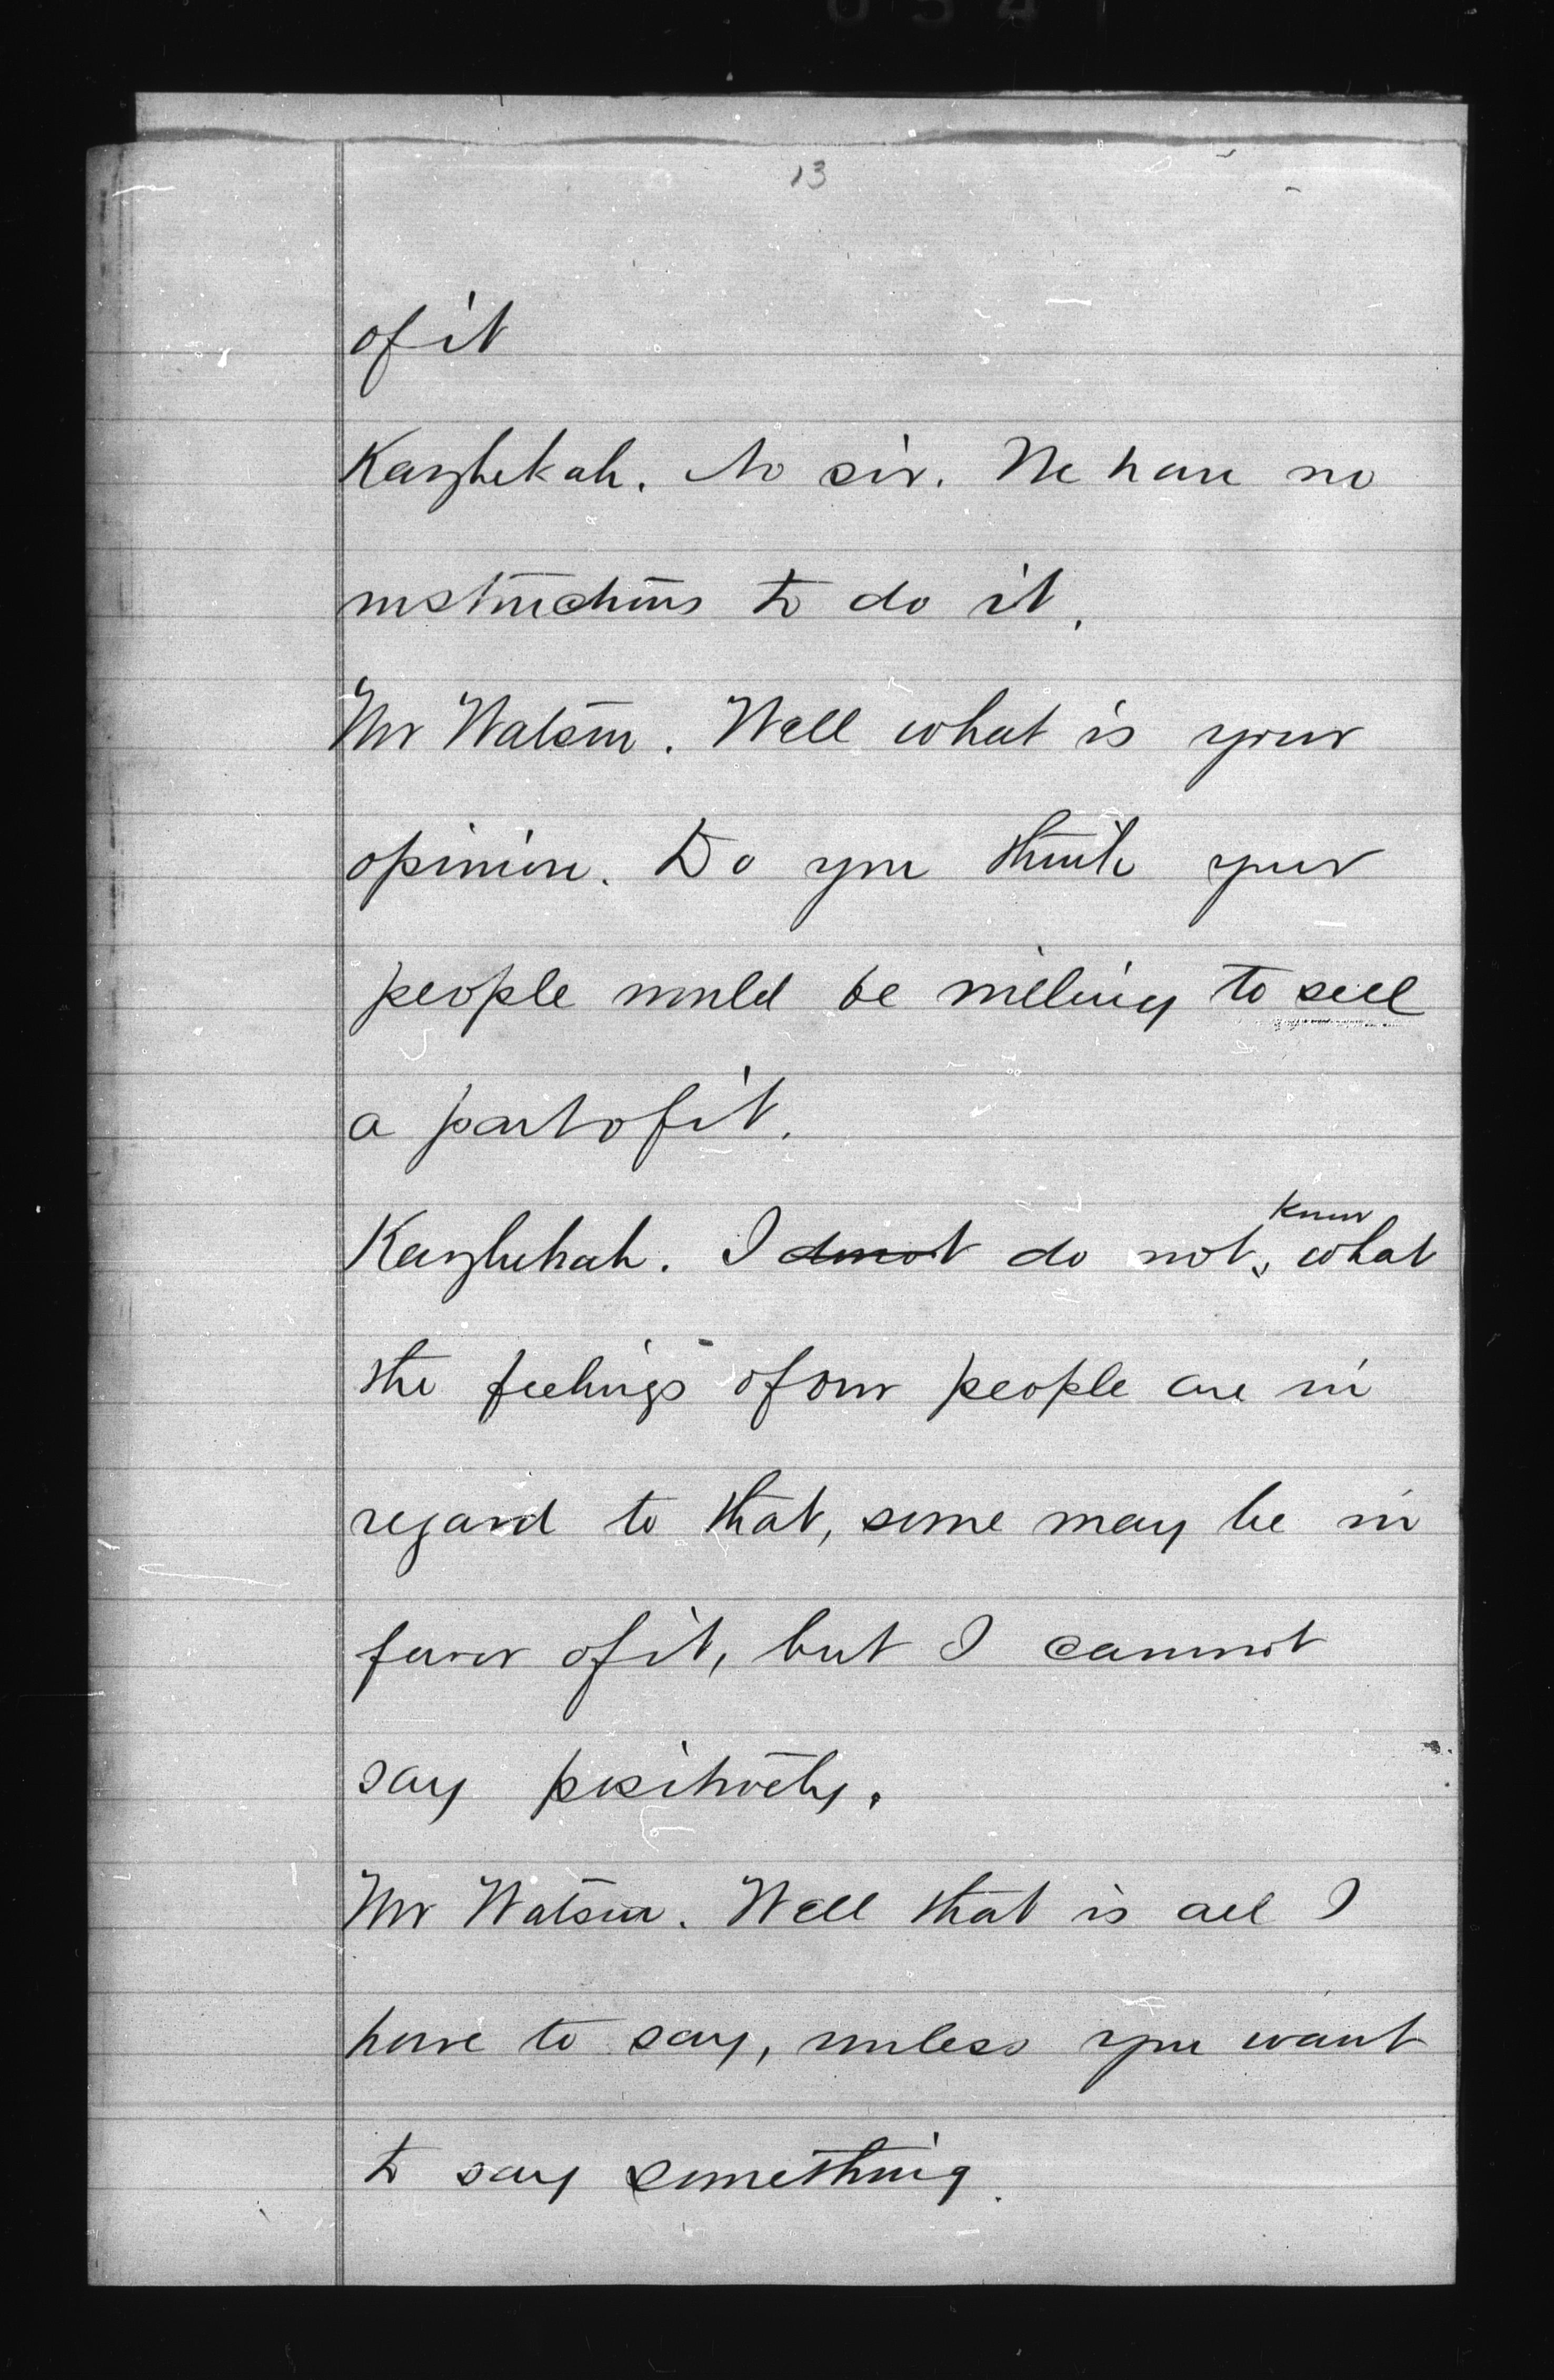 13
of it
Kayhekah. No sir. We have no
instructions to do it.
Mr Watson. Well what is your
opinion. Do you think your
people would be willing to sell
a part of it.
Kayhekah. I donot do not know what
the feelings of our people are in
regard to that, some may be in
favor of it, but I cannot
say positively.
Mr Watson. Well that is all I
have to say, unless you want
to say something.